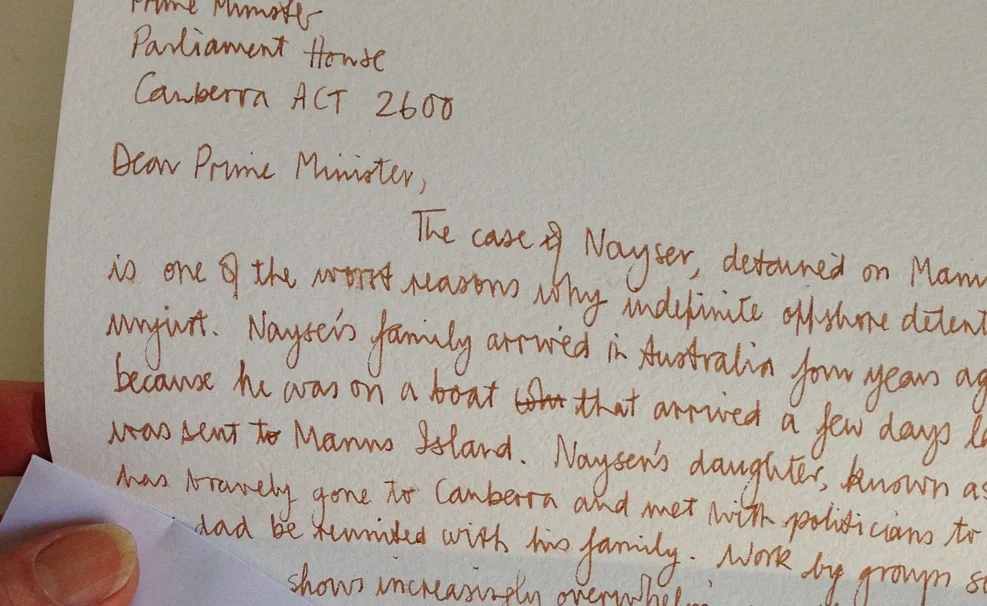 Prime Minister
Parliament House
Canberra ACT 2600
Dear Prime Minister,
The case of Nayser, detained on
is one of the worst reasons why indefinite offshore
unjust. Nayser's family arrived in Australia four years
because he was on a boat that arrived a few days
was sent to Manus Island. Nayser's daughter, known as
has bravely gone to Canberra and met with politicians to
dad be reunited with his family. Work by groups
shows increasingly